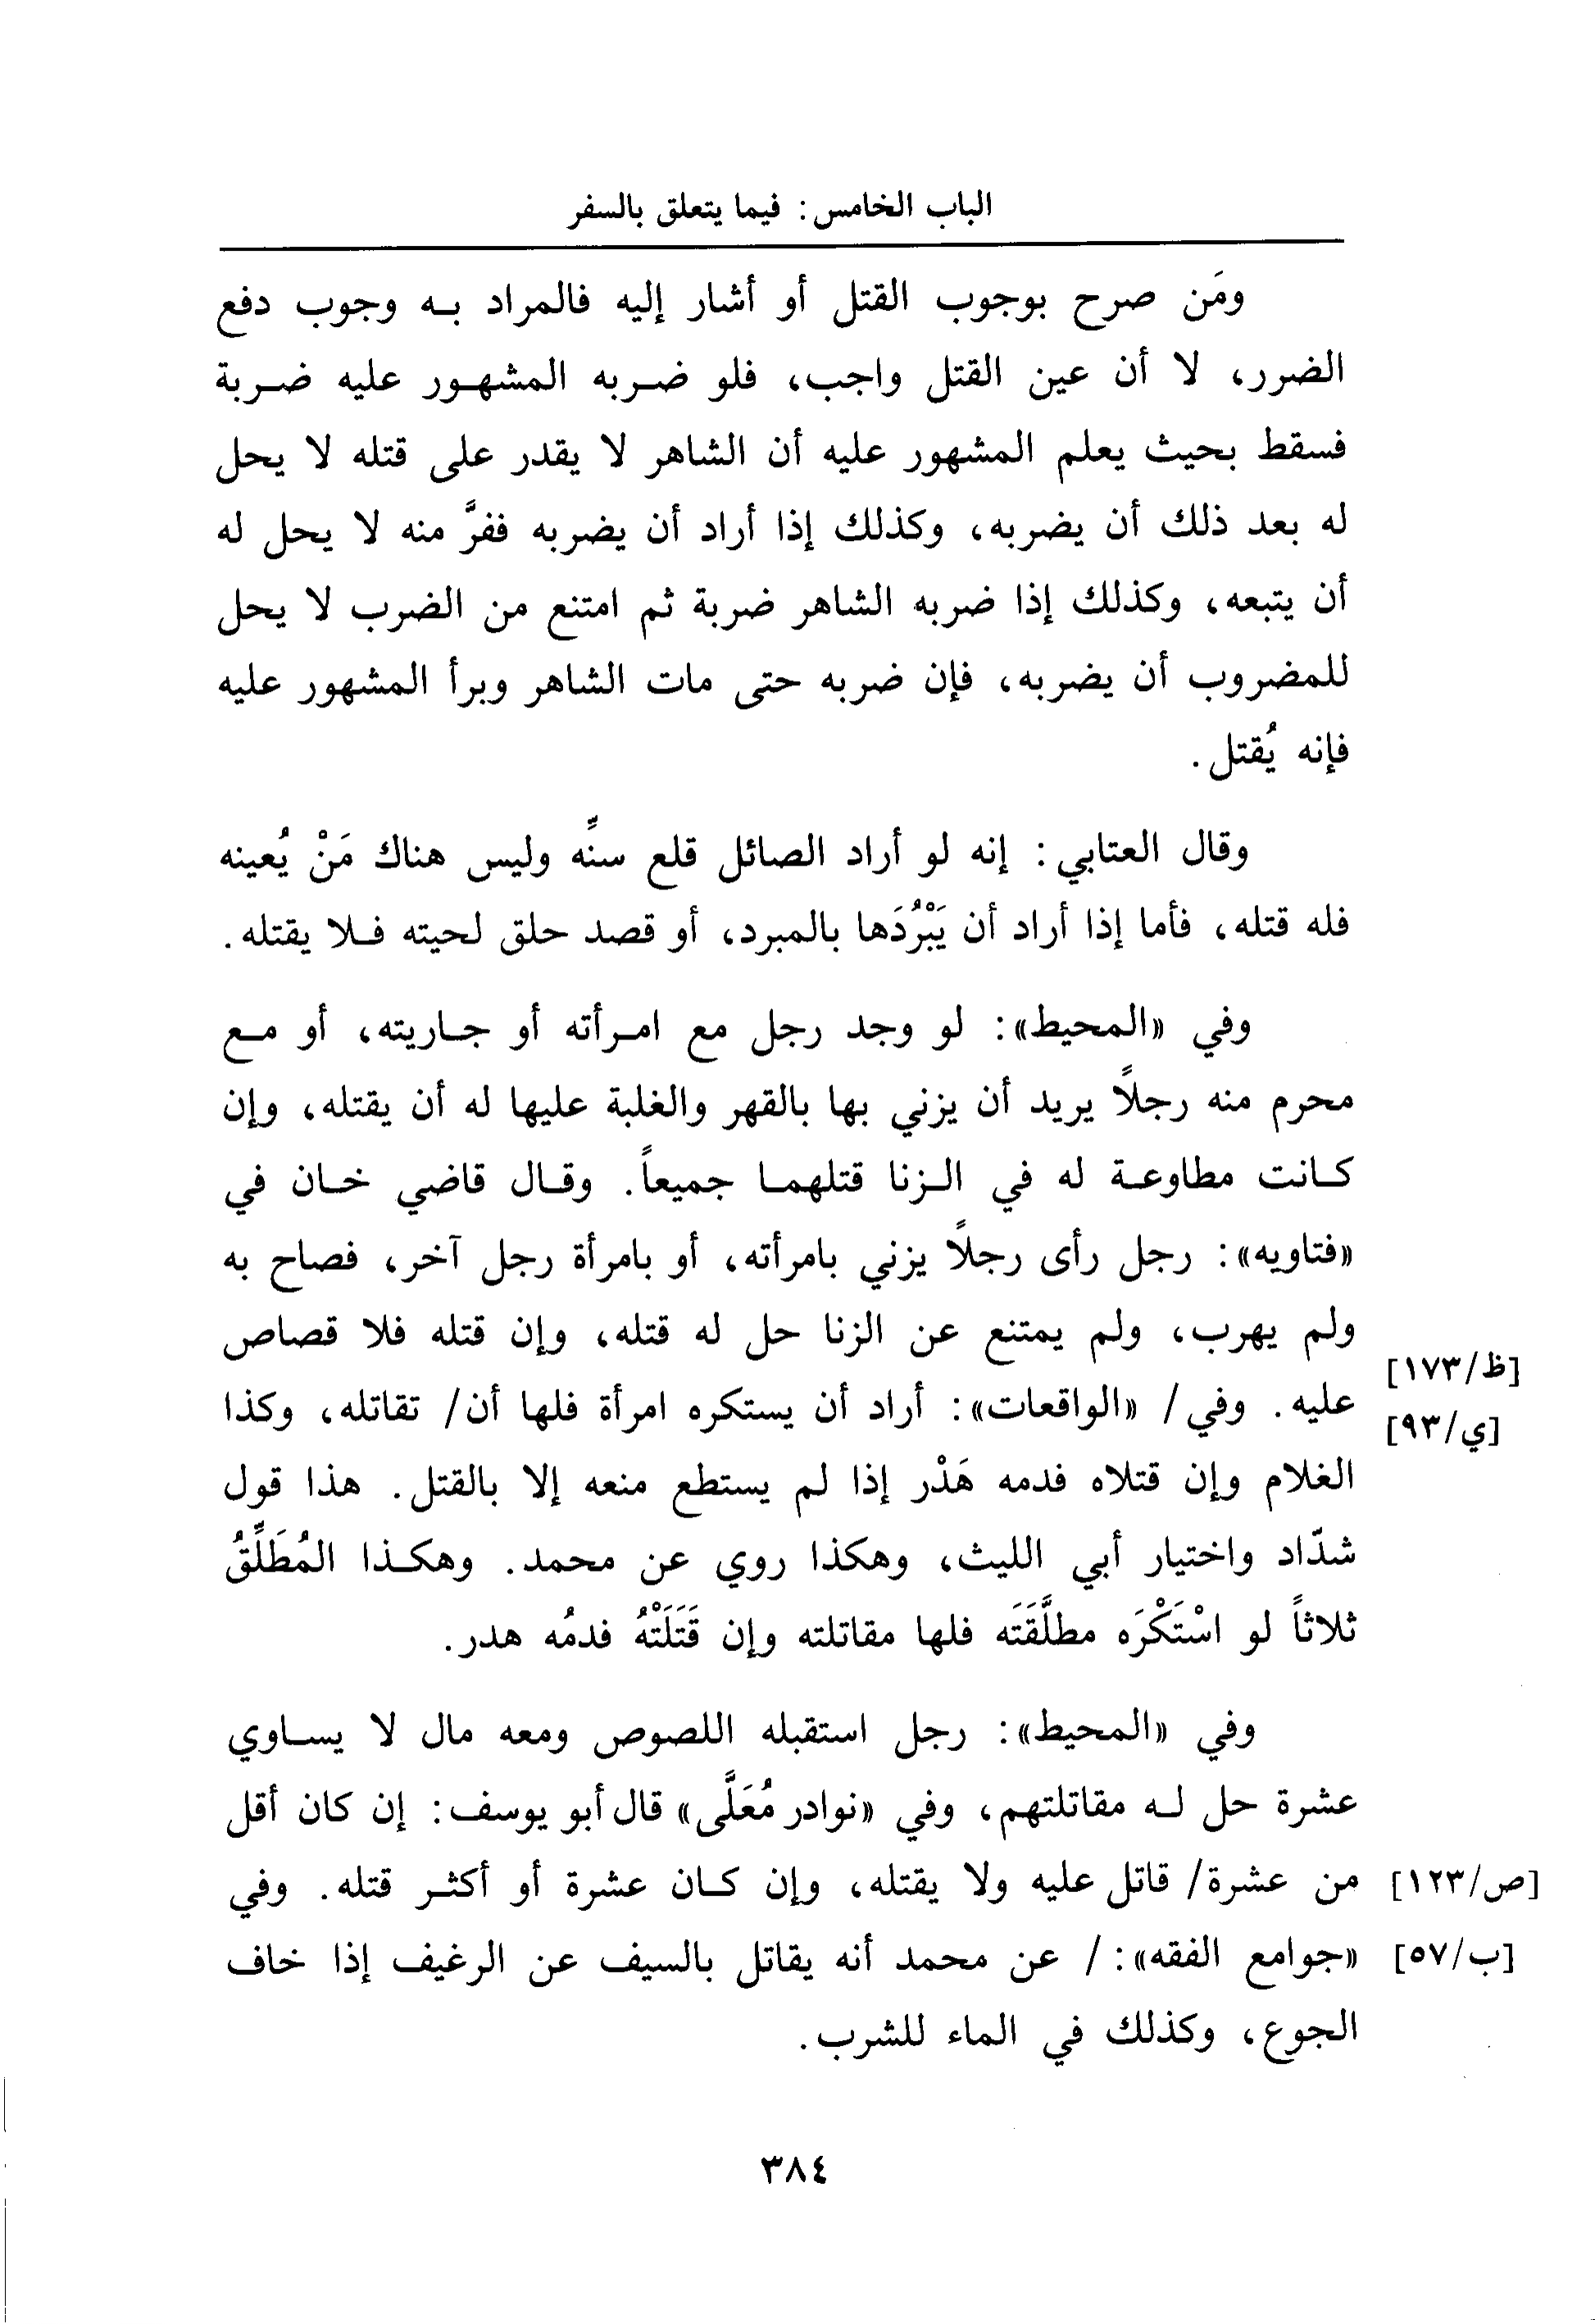 الباب الخامس: فيما يتعلق بالسفر
ومَن صرح بوجوب القتل أو أشار إليه فالمراد به وجوب دفع
الضرر، لا أن عين القتل واجب، فلو ضربه المشهور عليه ضربة
فسقط بحيث يعلم المشهور عليه أن الشاهر لا يقدر على قتله لا يحل
له بعد ذلك أن يضربه، وكذلك إذا أراد أن يضربه ففرَّ منه لا يحل له
أن يتبعه، وكذلك إذا ضربه الشاهر ضربة ثم امتنع من الضرب لا يحل
للمضروب أن يضربه، فإن ضربه حتى مات الشاهر وبرأ المشهور عليه
فإنه يُقتل.
وقال العتابي: إنه لو أراد الصائل قلع سنِّه وليس هناك مَنْ يُعينه
فله قتله، فأما إذا أراد أن يَبْرُدَها بالمبرد، أو قصد حلق لحيته فلا يقتله.
وفي «المحيط»: لو وجد رجل مع امرأته أو جاريته، أو مع
محرم منه رجلاً يريد أن يزني بها بالقهر والغلبة عليها له أن يقتله، وإن
كانت مطاوعة له في الزنا قتلهما جميعاً. وقال قاضي خان في
«فتاويه»: رجل رأى رجلاً يزني بامرأته، أو بامرأة رجل آخر، فصاح به
ولم يهرب، ولم يمتنع عن الزنا حل له قتله، وإن قتله فلا قصاص
[ظ/١٧٣]
عليه. وفي/ «الواقعات»: أراد أن يستكره امرأة فلها أن/ تقاتله، وكذا
[ي/٩٣]
الغلام وإن قتلاه فدمه هَدْر إذا لم يستطع منعه إلا بالقتل. هذا قول
شدّاد واختيار أبي الليث، وهكذا روي عن محمد. وهكذا المُطَلِّقُ
ثلاثاً لو اسْتَكْرَه مطلَّقَتَه فلها مقاتلته وإن قَتَلَتْهُ فدمُه هدر.
وفي «المحيط»: رجل استقبله اللصوص ومعه مال لا يساوي
عشرة حل له مقاتلتهم، وفي «نوادر مُعَلَّى» قال أبو يوسف: إن كان أقل
من عشرة/ قاتل عليه ولا يقتله، وإن كان عشرة أو أكثر قتله. وفي
[ص/١٢٣]
«جوامع الفقه»: / عن محمد أنه يقاتل بالسيف عن الرغيف إذا خاف
[ب/٥٧]
الجوع، وكذلك في الماء للشرب.
٣٨٤